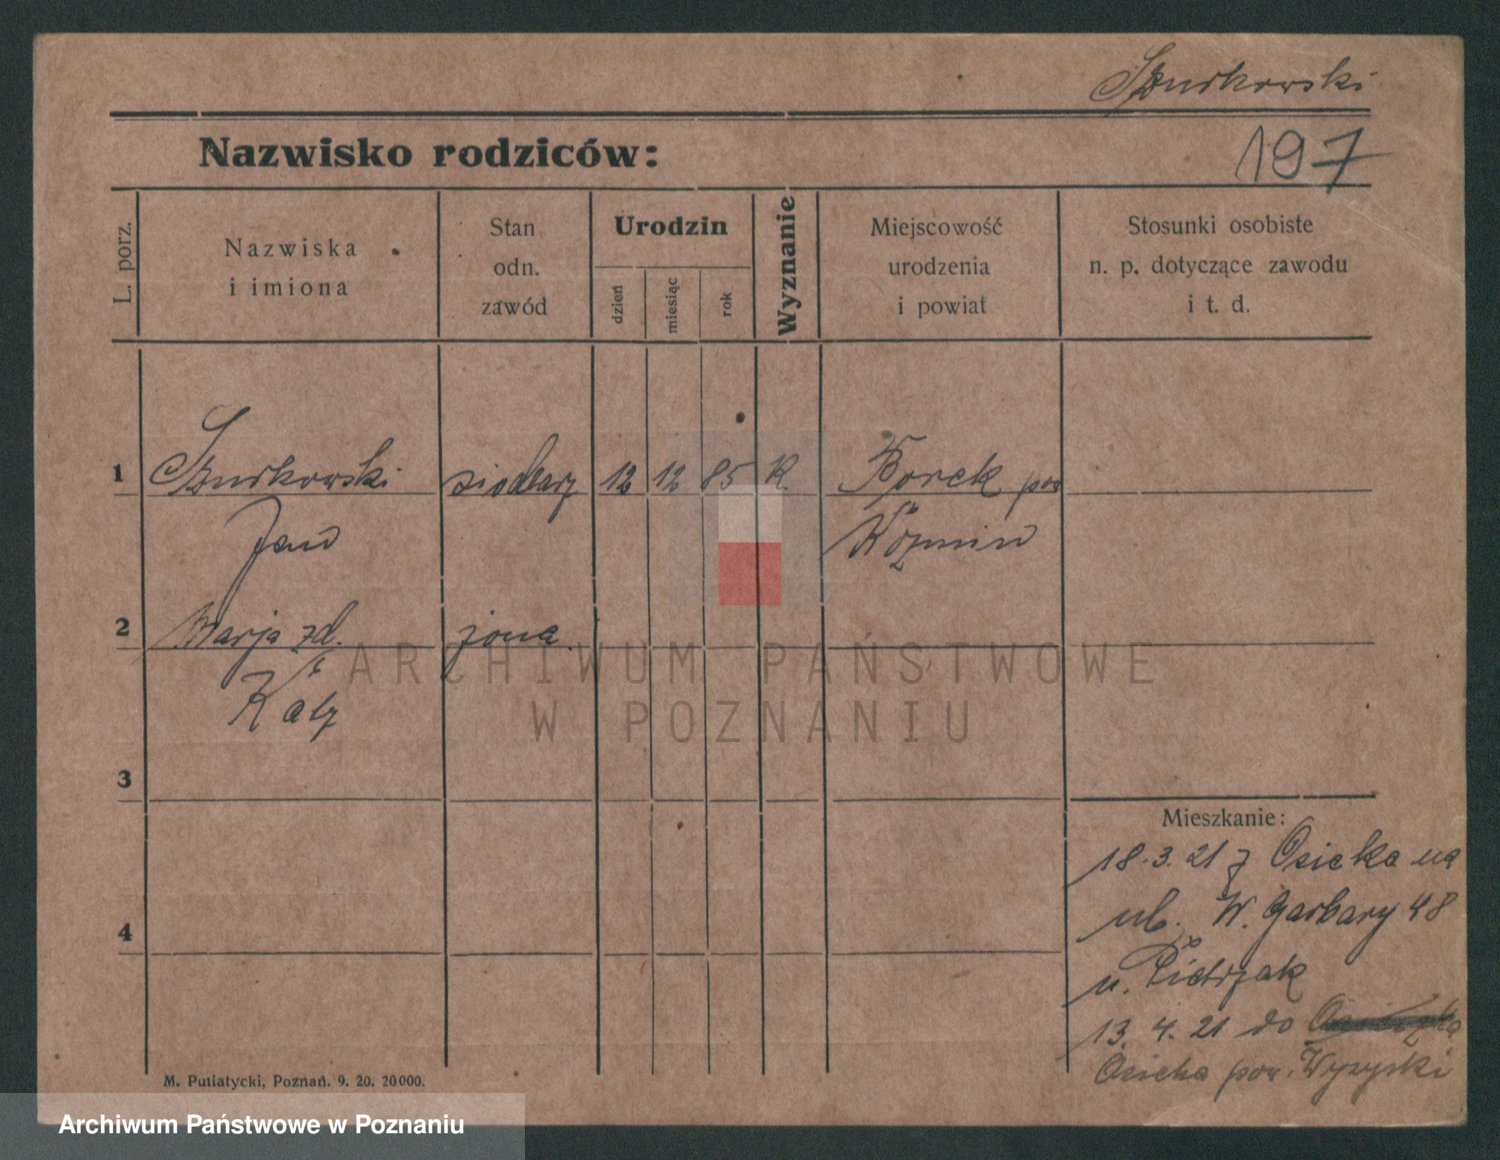 Szurkowski
Nazwisko rodziców:
197
L. porz.
Nazwiska
i imiona
Stan
odn.
zawód
Urodzin
dzień
miesiąc
rok
Wyznanie
Miejscowość
urodzenia
i powiat
Stosunki osobiste
n. p. dotyczące zawodu
i t. d.
1 Szurkowski siodlarz 12 12 85 K. Borek pow
Jan Koźmin
2 Marja zd. żona
Kały
3
4
Mieszkanie:
18.3.21 z Osieka na
ul. W. Garbary 48
u. Pietrzak
13.4.21 do
Osieka pow. Wyrzyski
M. Putiatycki, Poznań. 9. 20. 20000.
ARCHIWUM PAŃSTWOWE
W POZNANIU
Archiwum Państwowe w Poznaniu